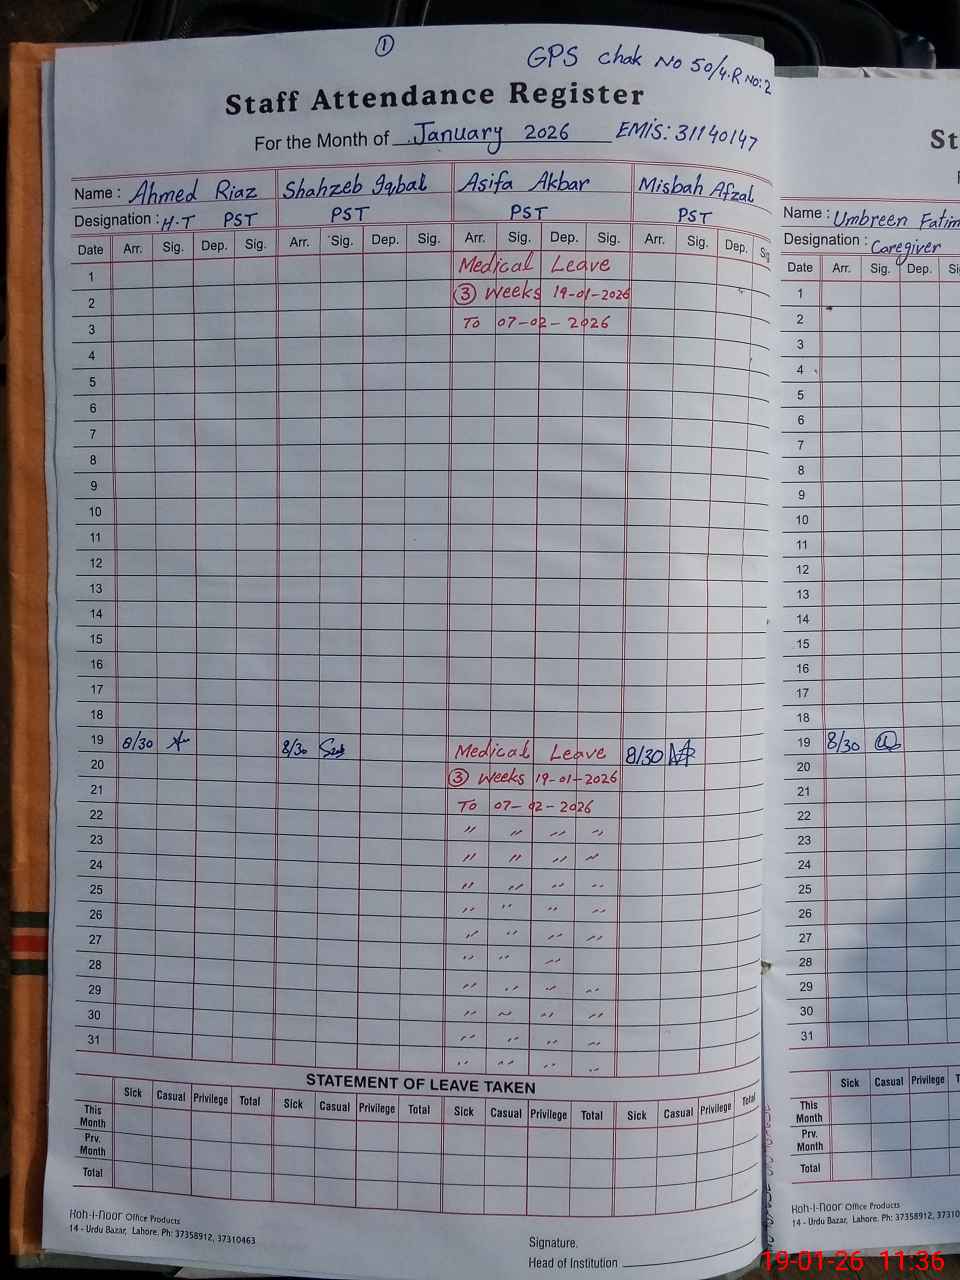 ①
GPS chak No 50/4.R No:2
Staff Attendance Register
For the Month of January 2026 EMIS: 31140147
Name : Ahmed Riaz Shahzeb Iqbal Asifa Akbar Misbah Afzal
Designation : H.T PST PST PST PST
Date Arr. Sig. Dep. Sig. Arr. Sig. Dep. Sig. Arr. Sig. Dep. Sig. Arr. Sig. Dep. Sig
1 Medical Leave
2 ③ Weeks 19-01-2026
3 To 07-02-2026
4
5
6
7
8
9
10
11
12
13
14
15
16
17
18
19 8/30 8/30 Medical Leave 8/30
20 ③ Weeks 19-01-2026
21 To 07-02-2026
22 " " " "
23 " " " "
24 " " " "
25 " " " "
26 " " " "
27 " " "
28 " " " "
29 " " " "
30 " " " "
31 " " " "
STATEMENT OF LEAVE TAKEN
Sick Casual Privilege Total Sick Casual Privilege Total Sick Casual Privilege Total Sick Casual Privilege Total
This Month
Prv. Month
Total
Koh-i-noor Office Products
14 - Urdu Bazar, Lahore. Ph: 37358912, 37310463
Signature.
Head of Institution
St
Name : Umbreen Fatim
Designation : Caregiver
Date Arr. Sig. Dep. Si
1
2
3
4
5
6
7
8
9
10
11
12
13
14
15
16
17
18
19 8/30
20
21
22
23
24
25
26
27
28
29
30
31
Sick Casual Privilege T
This Month
Prv. Month
Total
Koh-i-noor Office Products
14 - Urdu Bazar, Lahore. Ph: 37358912, 3731
19-01-26 11:36